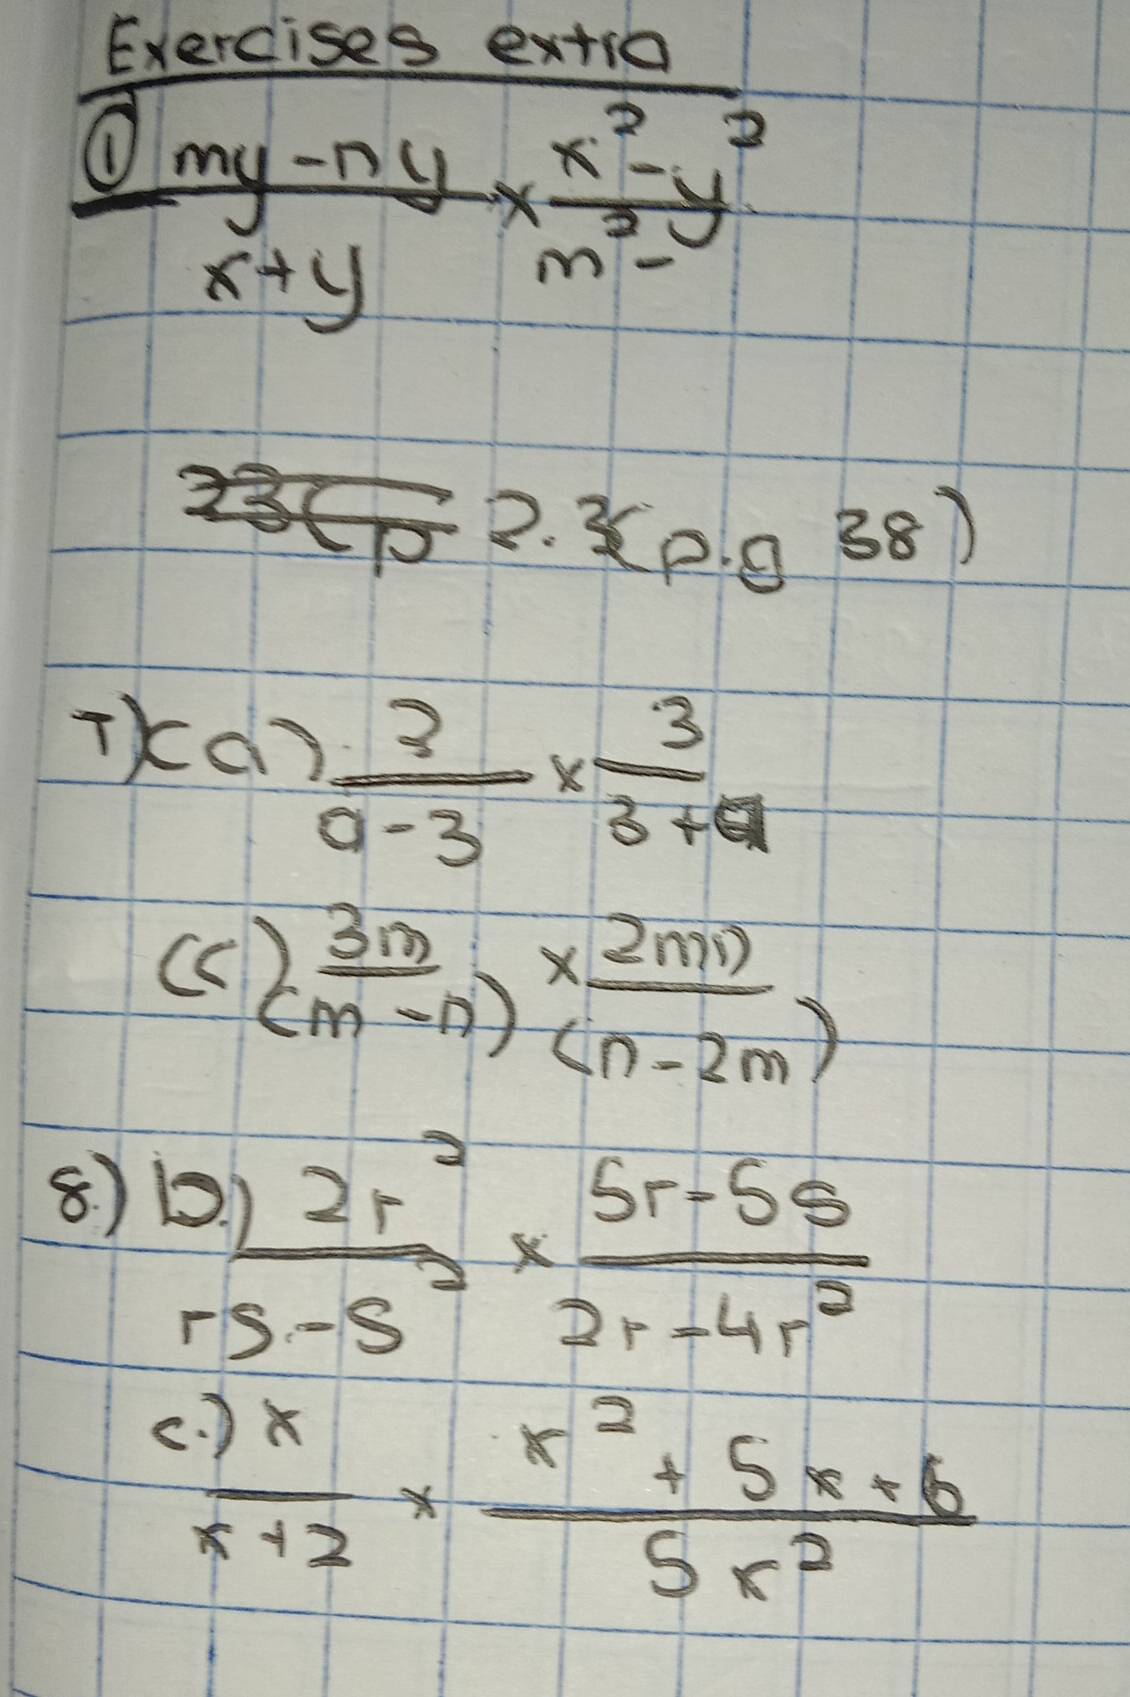 Exercises extra
① my-ny/x+y × x²-y²/m²-
2.3(p.g 38)
7)(a) 2/a-3 × 3/3+a
(c) 3m/(m-n) × 2mn/(n-2m)
8.) b.) 2r²/rs-s² × 5r-5s/2r-4r²
c.) x/x+2 × x²+5x+6/5x²